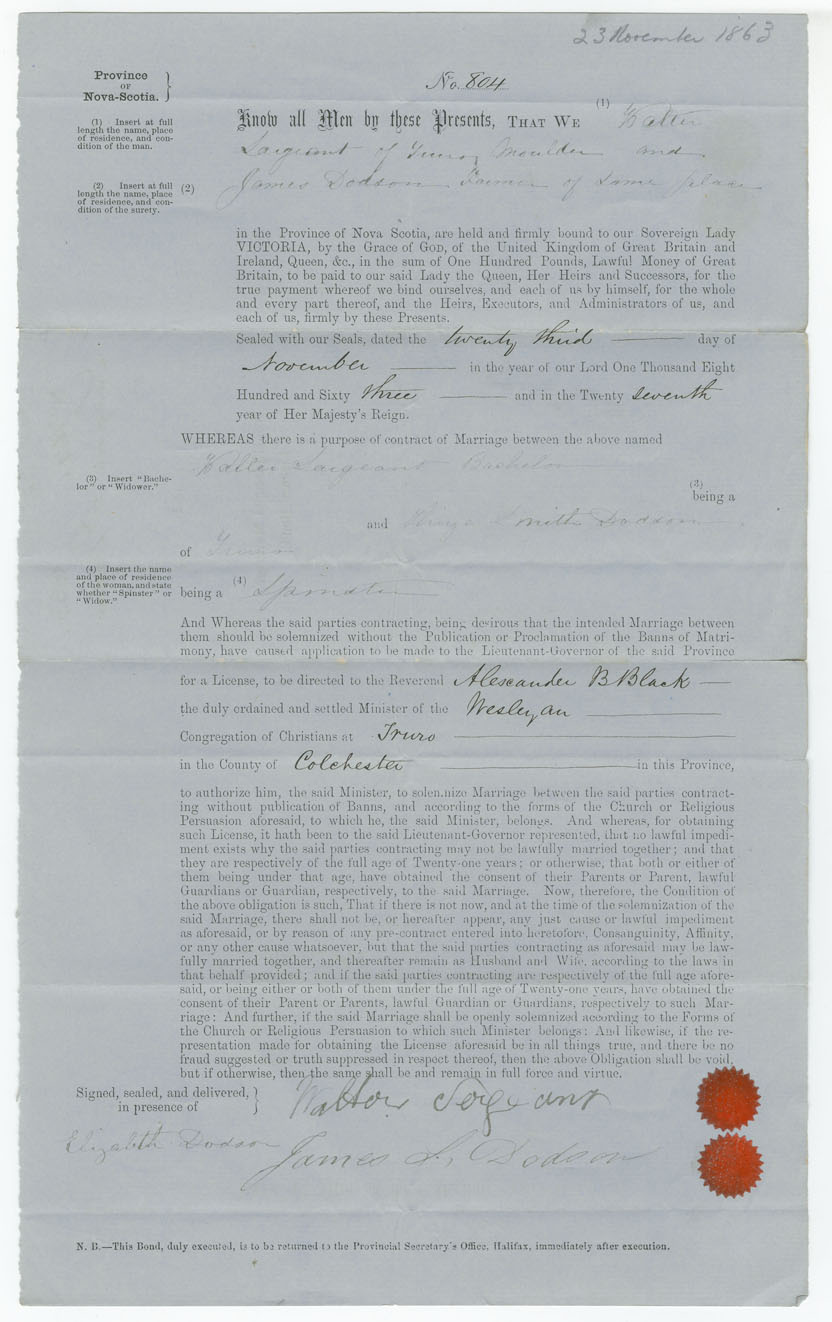 23 November 1863
Province
OF
Nova-Scotia.
No. 804
(1) Insert at full
length the name, place
of residence, and con-
dition of the man.
Know all Men by these Presents, THAT WE (1) Walter
Sargeant of Truro, Moulder and
(2) Insert at full
length the name, place
of residence, and con-
dition of the surety.
(2) James Dodson Farmer of same place
in the Province of Nova Scotia, are held and firmly bound to our Sovereign Lady
VICTORIA, by the Grace of GOD, of the United Kingdom of Great Britain and
Ireland, Queen, &c., in the sum of One Hundred Pounds, Lawful Money of Great
Britain, to be paid to our said Lady the Queen, Her Heirs and Successors, for the
true payment whereof we bind ourselves, and each of us by himself, for the whole
and every part thereof, and the Heirs, Executors, and Administrators of us, and
each of us, firmly by these Presents.
Sealed with our Seals, dated the twenty third day of
November in the year of our Lord One Thousand Eight
Hundred and Sixty three and in the Twenty seventh
year of Her Majesty's Reign.
WHEREAS there is a purpose of contract of Marriage between the above named
Walter Sargeant Bachelor
(3) Insert "Bache-
lor" or "Widower."
(3)
being a
and Smith Dodson
of Truro
(4) Insert the name
and place of residence
of the woman, and state
whether "Spinster" or
"Widow."
being a (4) Spinster
And Whereas the said parties contracting, being desirous that the intended Marriage between
them should be solemnized without the Publication or Proclamation of the Banns of Matri-
mony, have caused application to be made to the Lieutenant-Governor of the said Province
for a License, to be directed to the Reverend Alexander B Black
the duly ordained and settled Minister of the Wesleyan
Congregation of Christians at Truro
in the County of Colchester in this Province,
to authorize him, the said Minister, to solemnize Marriage between the said parties contract-
ing without publication of Banns, and according to the forms of the Church or Religious
Persuasion aforesaid, to which he, the said Minister, belongs. And whereas, for obtaining
such License, it hath been to the said Lieutenant-Governor represented, that no lawful impedi-
ment exists why the said parties contracting may not be lawfully married together; and that
they are respectively of the full age of Twenty-one years; or otherwise, that both or either of
them being under that age, have obtained the consent of their Parents or Parent, lawful
Guardians or Guardian, respectively, to the said Marriage. Now, therefore, the Condition of
the above obligation is such, That if there is not now, and at the time of the solemnization of the
said Marriage, there shall not be, or hereafter appear, any just cause or lawful impediment
as aforesaid, or by reason of any pre-contract entered into heretofore, Consanguinity, Affinity,
or any other cause whatsoever, but that the said parties contracting as aforesaid may be law-
fully married together, and thereafter remain as Husband and Wife, according to the laws in
that behalf provided; and if the said parties contracting are respectively of the full age afore-
said, or being either or both of them under the full age of Twenty-one years, have obtained the
consent of their Parent or Parents, lawful Guardian or Guardians, respectively to such Mar-
riage: And further, if the said Marriage shall be openly solemnized according to the Forms of
the Church or Religious Persuasion to which such Minister belongs: And likewise, if the re-
presentation made for obtaining the License aforesaid be in all things true, and there be no
fraud suggested or truth suppressed in respect thereof, then the above Obligation shall be void,
but if otherwise, then the same shall be and remain in full force and virtue.
Signed, sealed, and delivered,
in presence of
Walter Sergeant
Elizabeth Dodson
James S. Dodson
N. B.—This Bond, duly executed, is to be returned to the Provincial Secretary's Office, Halifax, immediately after execution.